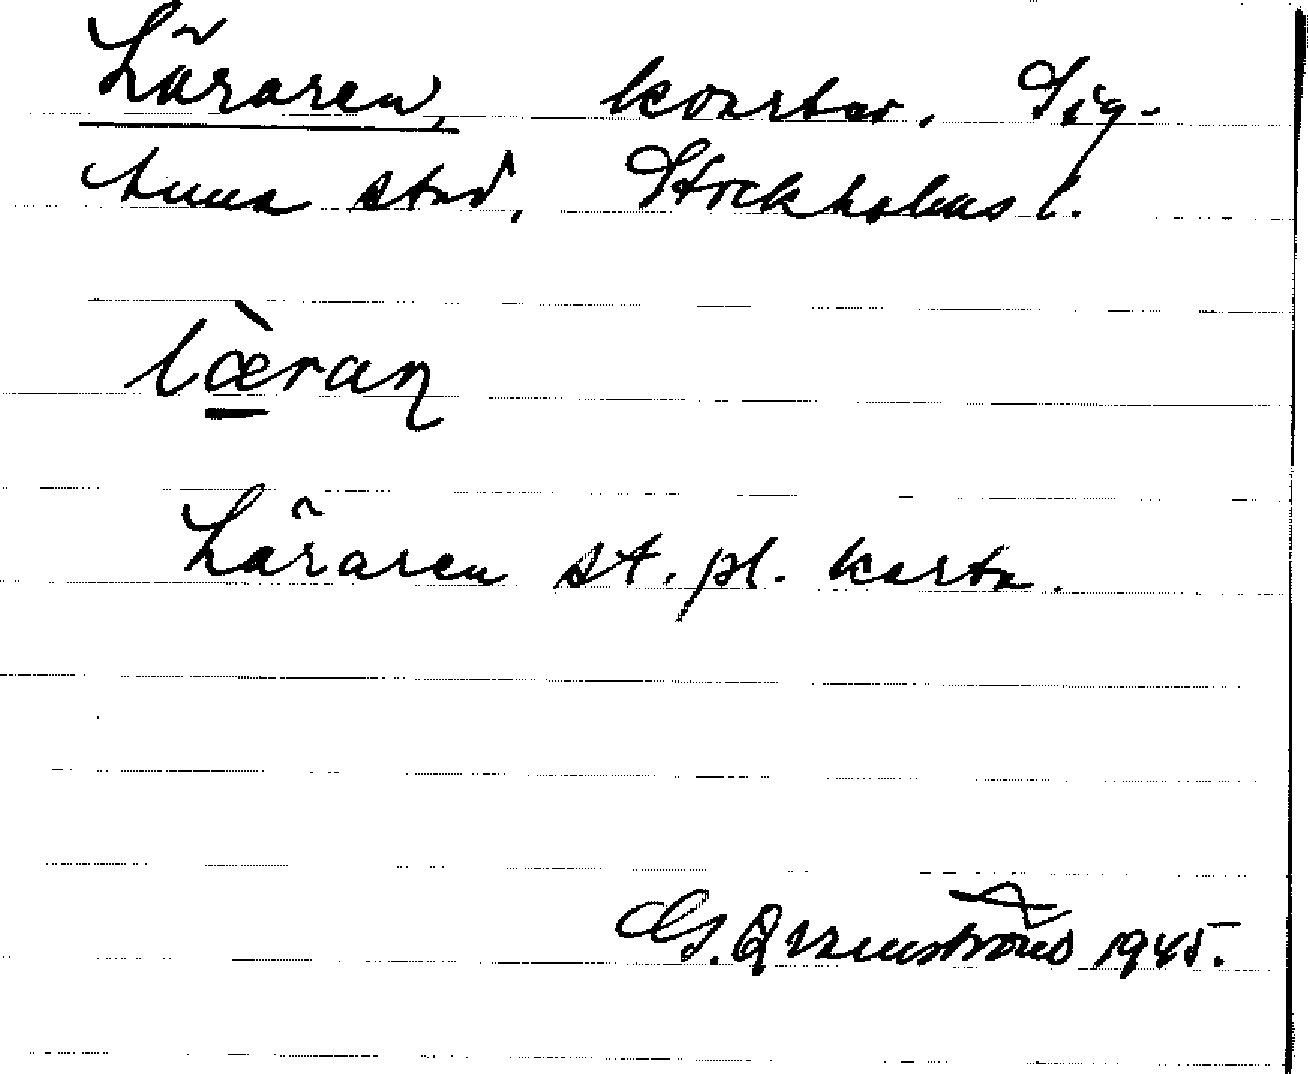 Läraren, kvarter. Sig-
tuna stad, Stockholms l.
læ̀raɳ
Läraren st. pl. karta.
G. Qvarnström 1945.